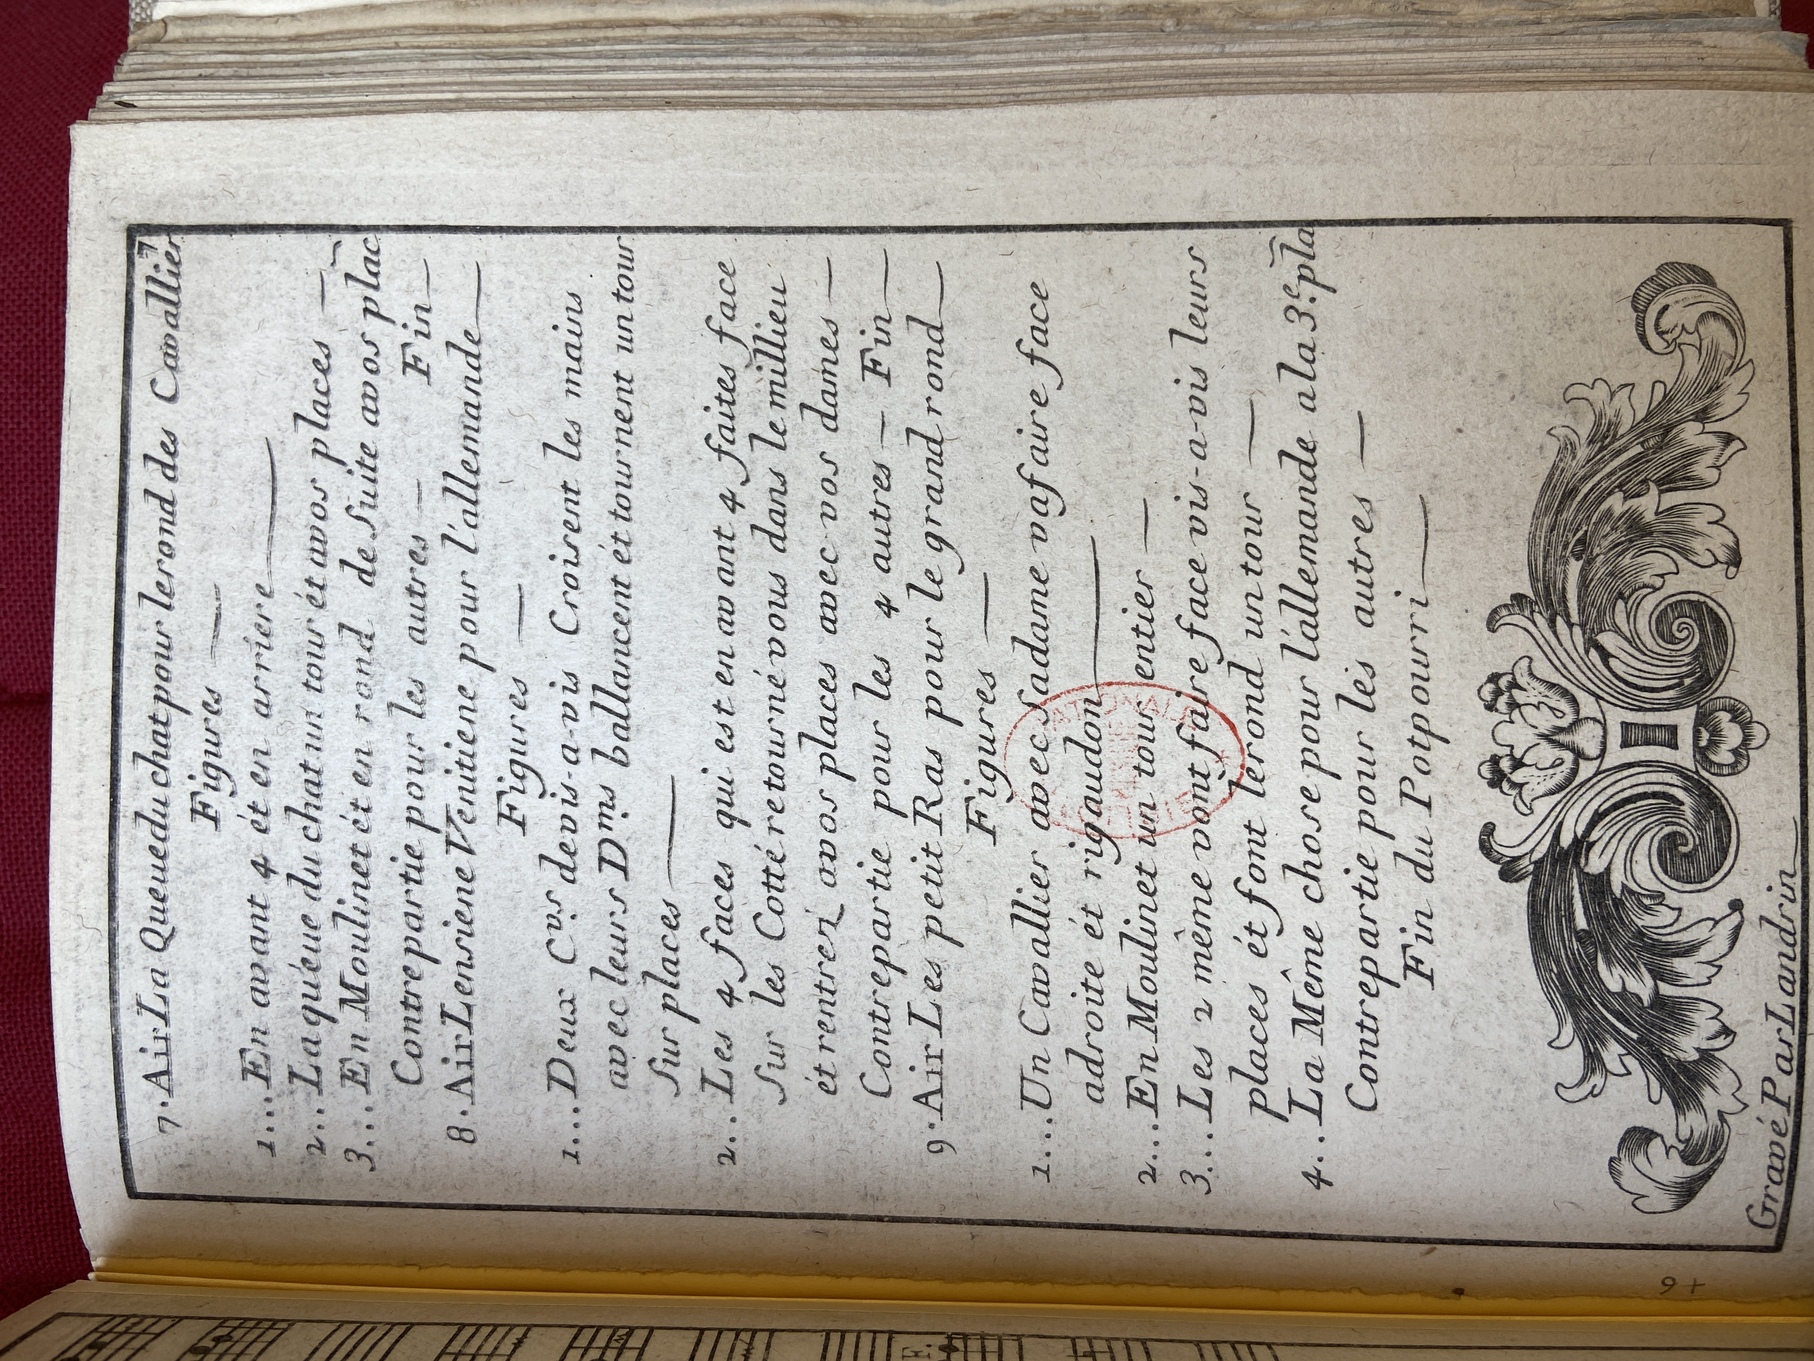 7
7. Air La Queue du chat pour le rond des Cavallier
Figures
1... En avant 4 ét en arriére
2... La queüe du chat un tour ét avos places
3... En Moulinet ét en rond de Suite avos plac
Contrepartie pour les autres — Fin
8. Air Lensiene Vénitiene pour l'allemande
Figures
1... Deux Cvrs devis-a-vis Croisent les mains
avec leurs Dms ballancent ét tournent un tour
Sur places
2... Les 4 faces qui est en avant 4 faites face
Sur les Cotté retourné vous dans le millieu
ét rentrez avos places avec vos dames
Contrepartie pour les 4 autres — Fin
9. Air Les petit Ras pour le grand rond
Figures
1... Un Cavallier avec Sadame va faire face
adroite ét rigaudon
2... En Moulinet un tour entier
3... Les 2 même vont faire face vis-a-vis leurs
places ét font le rond un tour
4.. La Même chose pour l'allemande ala 3e. pla
Contrepartie pour les autres
Fin du Potpourri
Gravé Par Landrin